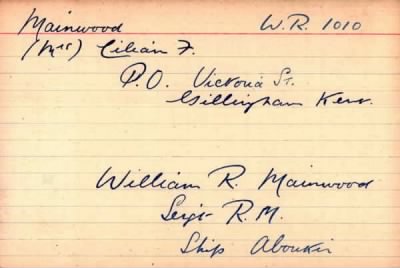 Mainwood W.R. 1010
(Mrs) Lilian F.
P.O. Victoria St.
Gillingham Kent.
William R. Mainwood
Sergt R.M.
Ship Aboukir